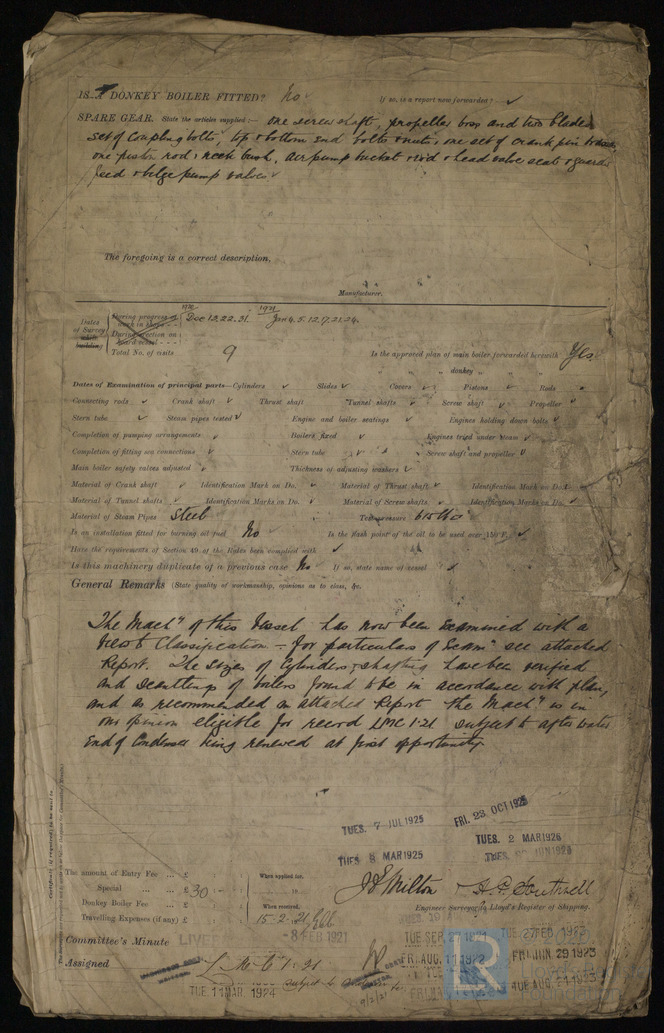 IS A DONKEY BOILER FITTED? No If so, is a report now forwarded? ✓
SPARE GEAR. State the articles supplied:— one screw shaft, propeller boss and two blades
set of coupling bolts, top & bottom end bolts & nuts, one set of crank pin brasses,
one piston rod & neck bush, air pump bucket & rod & head valve seats & guards
feed & bilge pump valves ✓
The foregoing is a correct description,
Manufacturer.
Dates of Survey while building
During progress of work in shops - - 1920 Dec 13. 22. 31. 1921 Jan 4. 5. 12. 17. 21. 24.
During erection on board vessel - - -
Total No. of visits 9 Is the approved plan of main boiler forwarded herewith Yes
" " " donkey " " "
Dates of Examination of principal parts—Cylinders ✓ Slides ✓ Covers ✓ Pistons ✓ Rods ✓
Connecting rods ✓ Crank shaft ✓ Thrust shaft Tunnel shafts ✓ Screw shaft ✓ Propeller ✓
Stern tube ✓ Steam pipes tested ✓ Engine and boiler seatings ✓ Engines holding down bolts ✓
Completion of pumping arrangements ✓ Boilers fixed ✓ Engines tried under steam ✓
Completion of fitting sea connections ✓ Stern tube ✓ Screw shaft and propeller ✓
Main boiler safety valves adjusted ✓ Thickness of adjusting washers ✓
Material of Crank shaft ✓ Identification Mark on Do. ✓ Material of Thrust shaft ✓ Identification Mark on Do. ✓
Material of Tunnel shafts ✓ Identification Marks on Do. ✓ Material of Screw shafts ✓ Identification Marks on Do. ✓
Material of Steam Pipes Steel Test pressure
Is an installation fitted for burning oil fuel No Is the flash point of the oil to be used over 150°F. ✓
Have the requirements of Section 49 of the Rules been complied with ✓
Is this machinery duplicate of a previous case No If so, state name of vessel ✓
General Remarks (State quality of workmanship, opinions as to class, &c.
The Machy of this Vessel has now been examined with a
view to Classification – for particulars of Exam see attached
Report. The sizes of Cylinders, shafting have been verified
and scantlings of boilers found to be in accordance with plan,
and as recommended on attached Report the Machy is in
our opinion eligible for record LMC 1.21 subject to after water
End of Condenser being renewed at first opportunity.
TUES. 7 JUL 1925 FRI. 23 OCT 1925
TUES. 2 MAR 1926
MAR 1925
The amount of Entry Fee ... £ : : When applied for,
Special ... ... £ 30 : :
Donkey Boiler Fee ... £ : : When received,
Travelling Expenses (if any) £ : : 15.2.21
J S Milton & H. P. Southwell
Engineer Surveyor to Lloyd's Register of Shipping.
Committee's Minute LIVER -8 FEB 1921
Assigned L.M.C 1.21
subject to
TUE. 11 MAR. 1924
9/2/21
TUE. 27 FEB. 1923
FRI. AUG. 11 1922 FRI. JUN. 29 1923
TUE AUG 21 1923
LR
Lloyd's Register
Foundation